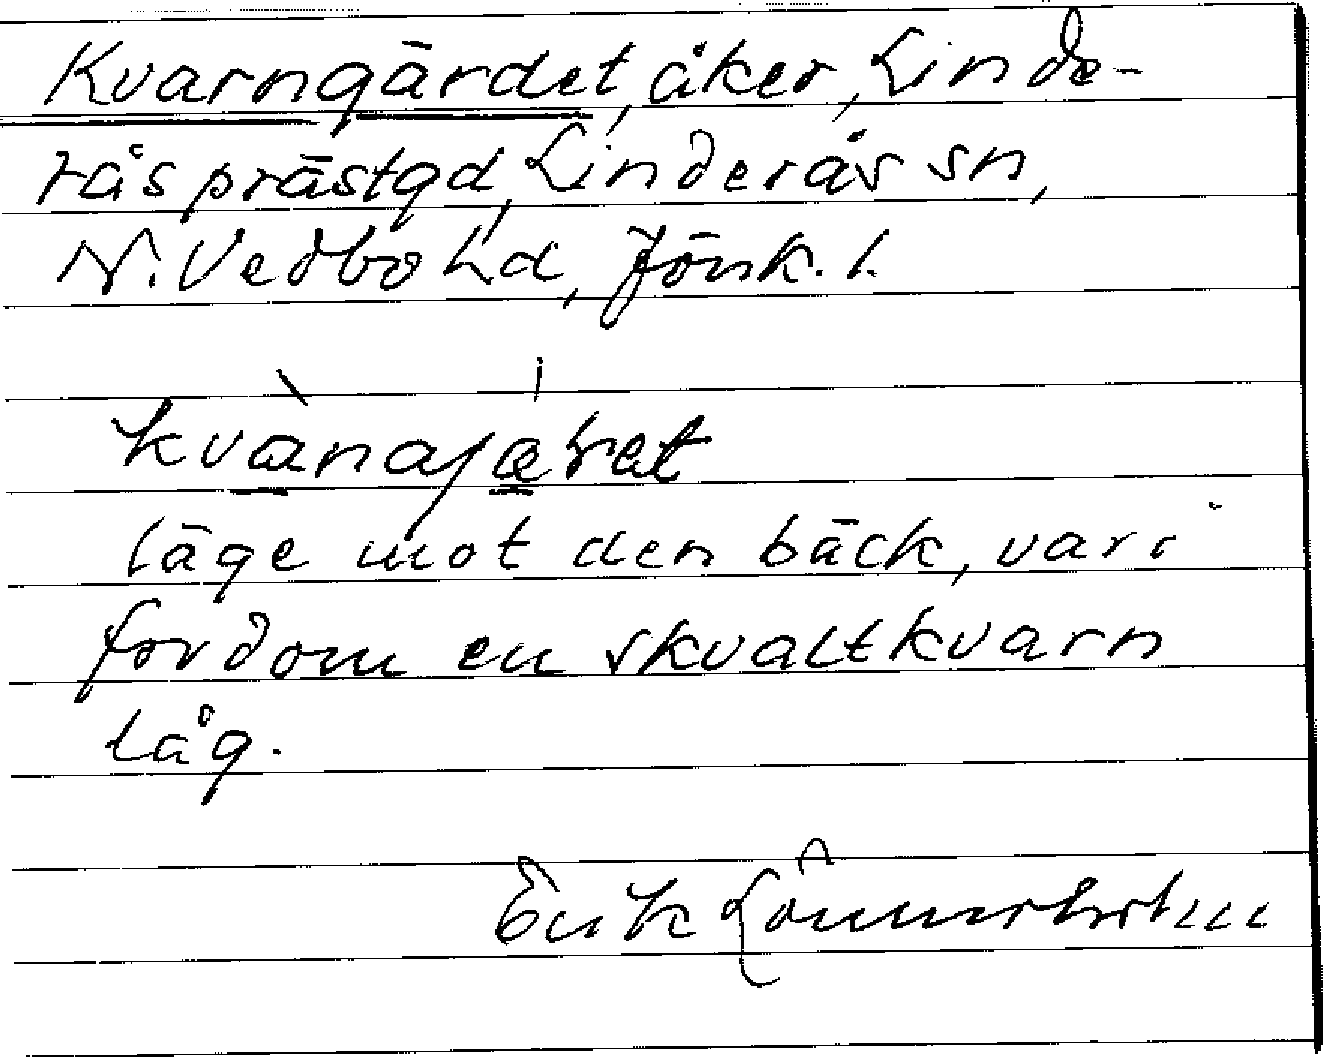 Kvarngärdet, åker, Linde-
rås prästgd, Linderås sn,
N. Vedbo hd, Jönk. l.
läge mot den bäck, vari
fordom en skvaltkvarn
låg.
Erik